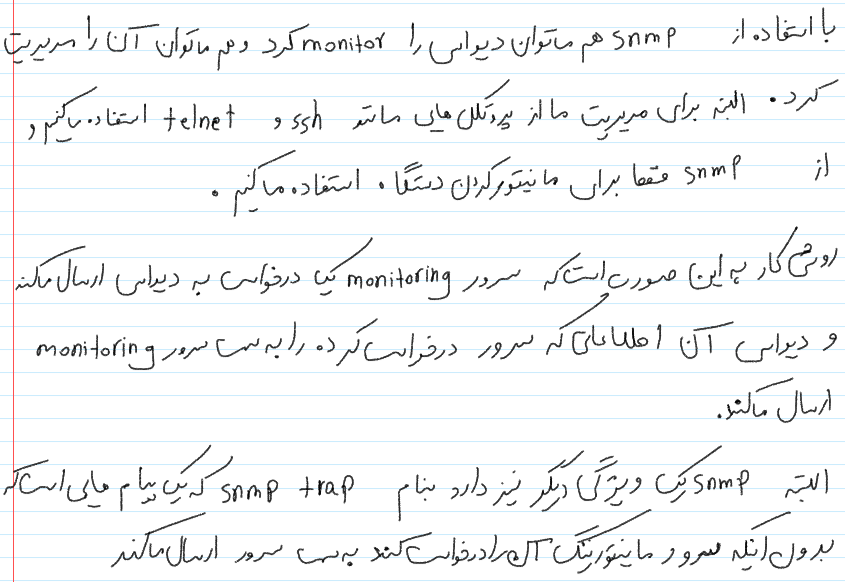 با استفاده از snmp هم میتوان دیوایس را monitor کرد و هم میتوان آن را مدیریت
کرد. البته برای مدیریت ما از پروتکل هایی مانند ssh و telnet استفاده میکنیم و
از snmp فقط برای مانیتور کردن دستگاه استفاده میکنیم.
روش کار به این صورت است که سرور monitoring یک درخواست به دیوایس ارسال میکند
و دیوایس آن اطلاعاتی که سرور درخواست کرده را به سمت سرور monitoring
ارسال میکند.
البته snmp یک ویژگی دیگر نیز دارد بنام snmp trap که یک پیام هایی است که
بدون اینکه سرور مانیتورینگ آن را درخواست کند به سمت سرور ارسال میکند